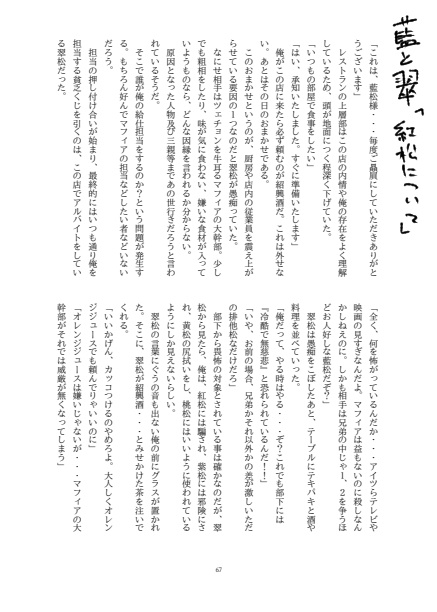 藍と翠「紅松について」
「これは、藍松様・・・毎度ご贔屓にしていただきありがと
うございます」
レストランの上層部はこの店の内情や俺の存在をよく理解
しているため、頭が地面につく程深く下げていた。
「いつもの部屋で食事をしたい」
「はい、承知いたしました。すぐに準備いたします」
俺がこの店に来たら必ず頼むのが紹興酒だ。これは外せな
い。あとはその日のおまかせである。
このおまかせというのが、厨房や店内の従業員を震え上が
らせている要因の1つなのだと翠松が愚痴っていた。
なにせ相手はツェチョンを牛耳るマフィアの大幹部。少し
でも粗相をしたり、味が気に食わない、嫌いな食材が入って
いようものなら、どんな因縁を言われるか分からない。
原因となった人物及び三親等まであの世行きだろうと言わ
れているそうだ。
そこで誰が俺の給仕担当をするのか？という問題が発生す
る。もちろん好んでマフィアの担当などしたい者などいない
だろう。
担当の押し付け合いが始まり、最終的にはいつも通り俺を
担当する貧乏くじを引くのは、この店でアルバイトをしてい
る翠松だった。
「全く、何を怖がっているんだか・・・アイツらテレビや
映画の見すぎなんだよ。マフィアは益もないのに殺しなん
かしねえのに。しかも相手は兄弟の中じゃ1、2を争うほ
どお人好しな藍松だぞ？」
翠松は愚痴をこぼしたあと、テーブルにテキパキと酒や
料理を並べていった。
「俺だって、やる時はやる・・・ぞ？これでも部下には
『冷酷で無慈悲』と恐れられているんだ！！」
「いや、お前の場合、兄弟かそれ以外かの差が激しいただ
の排他松なだけだろ」
部下から畏怖の対象とされている事は確かなのだが、翠
松から見たら、俺は、紅松には騙され、紫松には邪険にさ
れ、黄松の尻拭いをし、桃松にはいいように使われている
ようにしか見えないらしい。
翠松の言葉にぐうの音も出ない俺の前にグラスが置かれ
た。そこに、翠松が紹興酒・・・とみせかけた茶を注いで
くれる。
「いいかげん、カッコつけるのやめろよ。大人しくオレン
ジジュースでも頼んでりゃいいのに」
「オレンジジュースは嫌いじゃないが・・・マフィアの大
幹部がそれでは威厳が無くなってしまう」
67